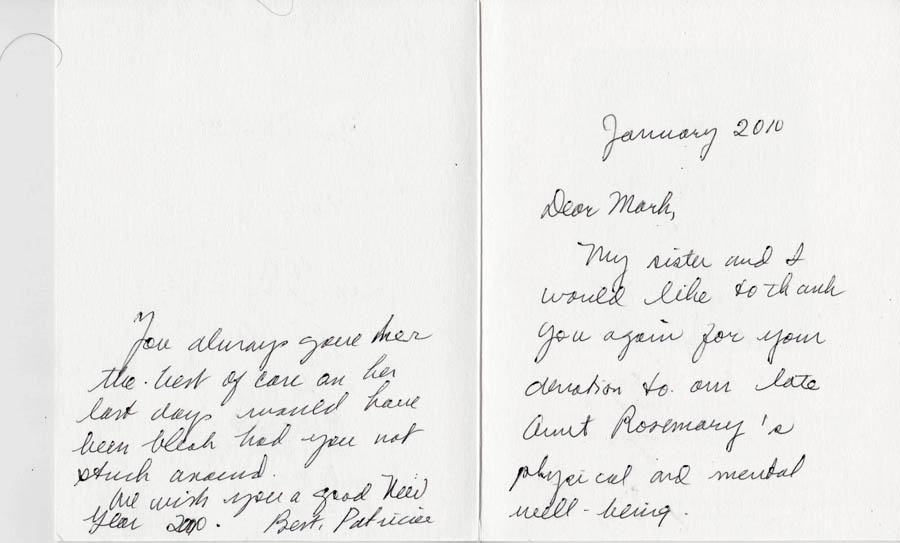 January 2010
Dear Mark,
My sister and I
would like to thank
you again for your
devotion to our late
Aunt Rosemary's
physical and mental
well-being.
You always gave her
the best of care an her
last days would have
been bleak had you not
stuck around.
We wish you a good New
Year 2010. Best, Patricia